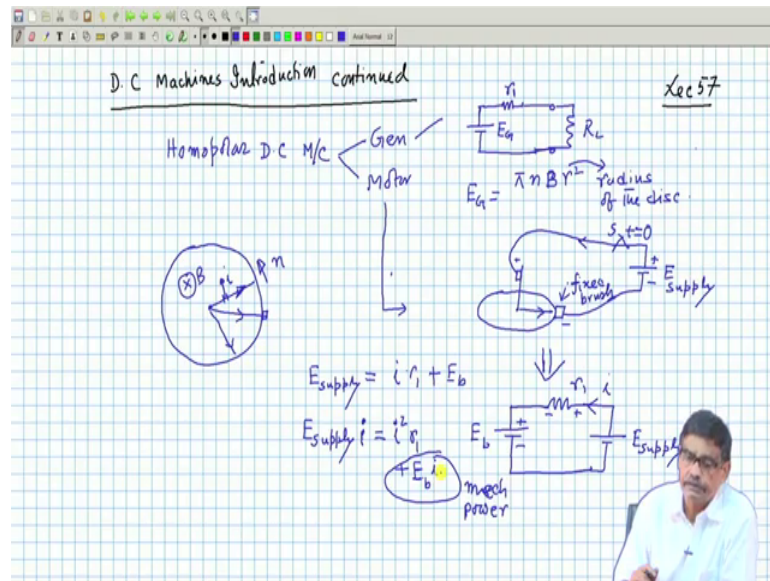 Arial Normal 12
D.C Machines Introduction continued
Lec 57
Homopolar D.C M/C
Gen
Motor
r₁
E_G
R_L
E_G = π n B r² radius of the disc.
B
i
n
S t=0
+
-
E supply
+
fixed brush
-
E_supply = i r₁ + E_b
E_supply i = i² r₁
+ E_b i
mech power
r₁ i
- +
E_b
+
-
E_supply